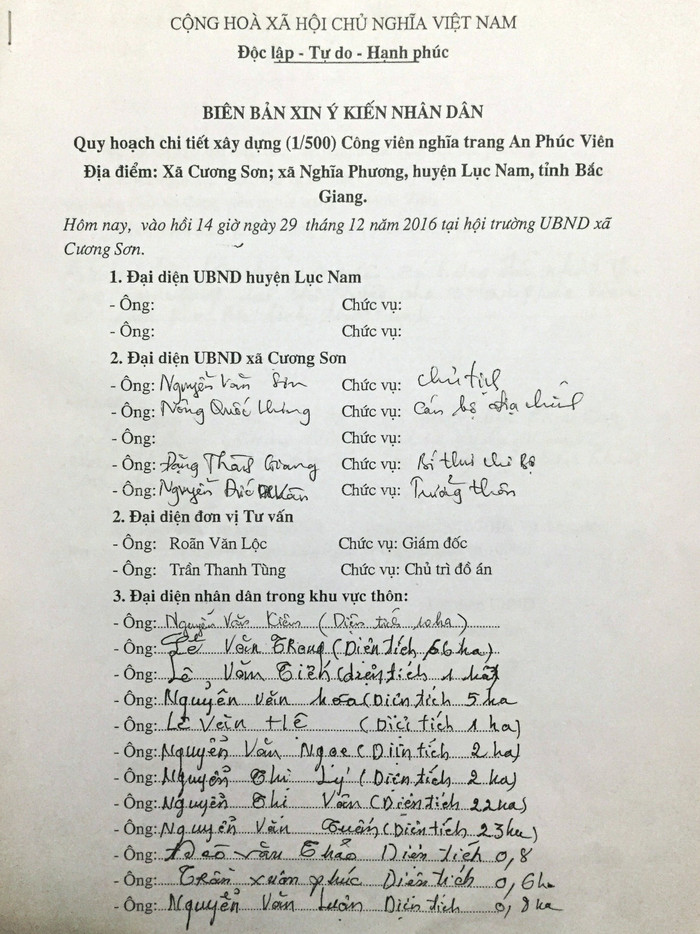 CỘNG HOÀ XÃ HỘI CHỦ NGHĨA VIỆT NAM
Độc lập - Tự do - Hạnh phúc
BIÊN BẢN XIN Ý KIẾN NHÂN DÂN
Quy hoạch chi tiết xây dựng (1/500) Công viên nghĩa trang An Phúc Viên
Địa điểm: Xã Cương Sơn; xã Nghĩa Phương, huyện Lục Nam, tỉnh Bắc
Giang.
Hôm nay, vào hồi 14 giờ ngày 29 tháng 12 năm 2016 tại hội trường UBND xã
Cương Sơn.
1. Đại diện UBND huyện Lục Nam
- Ông: Chức vụ:
- Ông: Chức vụ:
2. Đại diện UBND xã Cương Sơn
- Ông: Nguyễn Văn Sơn Chức vụ: Chủ tịch
- Ông: Nông Quốc Hưng Chức vụ: Cán bộ địa chính
- Ông: Chức vụ:
- Ông: Đặng Giang Chức vụ: Bí thư chi bộ
- Ông: Nguyễn Đức Chức vụ: Trưởng thôn
2. Đại diện đơn vị Tư vấn
- Ông: Roãn Văn Lộc Chức vụ: Giám đốc
- Ông: Trần Thanh Tùng Chức vụ: Chủ trì đồ án
3. Đại diện nhân dân trong khu vực thôn:
- Ông: Nguyễn Văn Kiên (Diện tích
- Ông: Lê Văn Trọng (Diện tích
- Ông: Lê Văn (diện tích 1
- Ông: Nguyễn văn hoa (Diện tích 5 ha
- Ông: Lê Văn Hệ (Diện tích 1 ha)
- Ông: Nguyễn Văn Ngọc (Diện tích 2 ha)
- Ông: Nguyễn Thị Lý (Diện tích 2 ha)
- Ông: Nguyễn Thị Vân (Diện tích
- Ông: Nguyễn Văn (Diện tích
- Ông: Đào văn Thảo Diện tích 0,8
- Ông: Trần xuân phúc Diện tích 0,6 ha
- Ông: Nguyễn Văn Luận Diện tích 0,8 ha